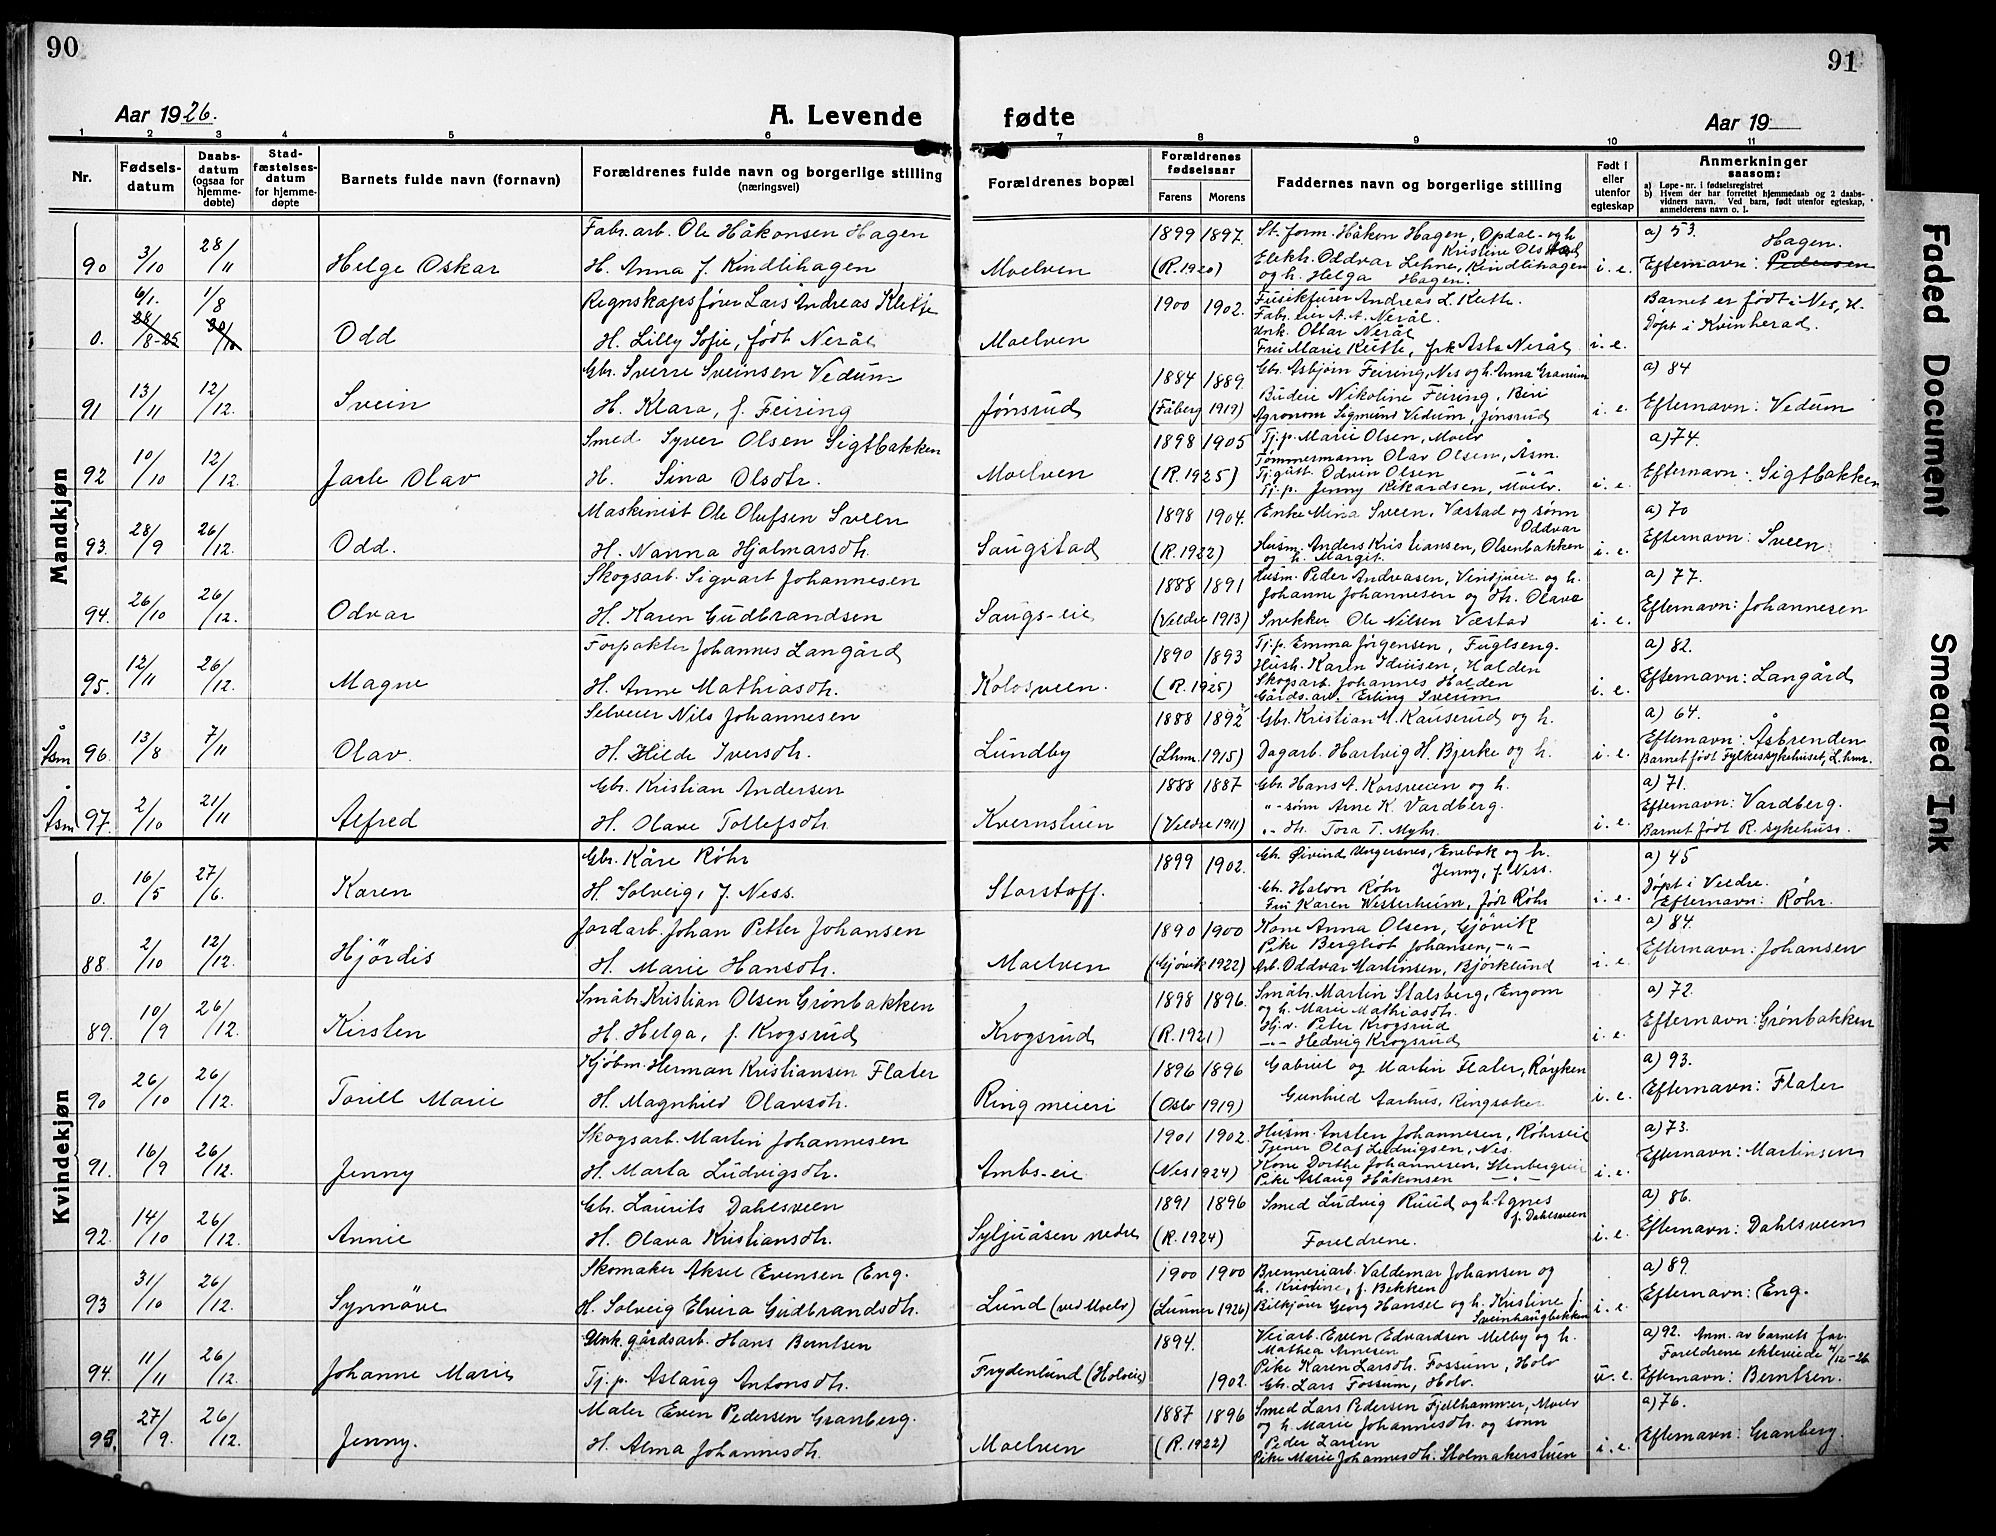 90
Aar 1926.
A. Levende
1 2 3 4 5 6
Nr.
Fødsels-
datum
Daabs-
datum
(ogsaa for
hjemme-
døbte)
Stad-
fæstelses-
datum
for hjemme-
døpte
Barnets fulde navn (fornavn)
Forældrenes fulde navn og borgerlige stilling
(næringsvei)
Mandkjøn
90 3/10 28/11 Helge Oskar
Fabr. arb. Ole Håkonsen Hagen
H. Anna f. Kindlihagen
0. 6/1. 28/8-25 1/8 30/10 Odd
Regnskapsfører Lars Andreas Kletje
H. Lilly Sofie, født Nerål
91 13/11 12/12. Svein
Gbr. Sverre Sveinsen Vedum
H. Klara, f. Feiring
92 10/10 12/12. Jarle Olav
Smed Syver Olsen Sigtbakken
H. Sina Olsdtr.
93. 28/9 26/12. Odd.
Maskinist Ole Olufsen Sveen
H. Nanna Hjalmarsdtr.
94. 26/10 26/12. Odvar
Skogsarb. Sigvart Johannesen
H. Karen Gudbrandsen
95. 12/11 26/12. Magne
Forpakter Johannes Langård
H. Anne Mathiasdtr.
Åsm 96. 13/8 7/11 Olav.
Selveier Nils Johannesen
H. Hilde Iversdtr.
Åsm 97. 2/10 21/11 Alfred
Gbr. Kristian Andersen
H. Olave Tollefsdtr.
Kvindekjøn
0. 16/5 27/6. Karen
Gbr. Kåre Røhr
H. Solveig, f. Ness.
88. 2/10 12/12. Hjørdis
Jordarb. Johan Petter Johansen
H. Marie Hansdtr.
89. 10/9 26/12. Kirsten
Småbr. Kristian Olsen Grønbakken
H. Helga, f. Krogsrud
90 26/10 26/12. Torill Marie
Kjøbm. Herman Kristiansen Flater
H. Magnhild Olavsdtr.
91. 16/9 26/12. Jenny
Skogsarb. Martin Johannesen
H. Marta Ludvigsdtr.
92. 14/10 26/12. Annie
Gbr. Laurits Dahlsveen
H. Olava Kristiansdtr.
93 31/10 26/12. Synnøve
Skomaker Aksel Evensen Eng.
H. Solveig Elvira Gudbrandsdtr.
94. 11/11 26/12. Johanne Marie
Unk. gårdsarb. Hans Berntsen
Tj.p. Aslaug Antonsdtr.
95. 27/9. 26/12. Jenny.
Maler Even Pedersen Granberg.
H. Alma Johannesdtr.
91
fødte
Aar 19
7 8 9 10 11
Forældrenes bopæl
Forældrenes
fødselsaar
Farens Morens
Faddernes navn og borgerlige stilling
Født i
eller
utenfor
egteskap
Anmerkninger
saasom:
a) Løpe-nr. i fødselsregistret
b) Hvem der har forrettet hjemmedaab og 2 daabs-
vidners navn. Ved barn, født utenfor egteskap,
anmelderens navn o. l.
Moelven
1899 1897.
(R. 1920)
St. form. Håkon Hagen, Opdal - og h
Kristine Olstad
Elekh. Oddvar Lehne, Kindlihagen
og h. Helga Hagen.
i. e.
a) 53.
Hagen.
Efternavn: Pedersen
Moelven
1900 1902.
Andreas L.
Fabr. eier A. A. Nerål.
Unk. Ottar Nerål
Fru Marie, frk Asta Nerål.
i. e.
Barnet er født i Nes, H.
Døpt i Kvinherad.
Jønsrud
1884 1889.
(Fåberg 1919)
Gbr. Asbjørn Feiring, Nes og h. Anna Granum
Budeie Nikoline Feiring, Biri
Agronom Sigmund Vedum, Jønsrud
i. e.
a) 84
Efternavn: Vedum
Moelven
1898 1905
(R. 1925)
Tj.p. Marie Olsen, Moelv
Tømmermann Olav Olsen, Åsm.
Tj.gutt Odvin Olsen -"-
Tj.p. Jenny Rikardsen, Moelv.
i. e.
a) 74.
Efternavn: Sigtbakken
Saugstad
1898 1904.
(R. 1922)
Enke Mina Sveen, Væstad og sønn
Oddvar
Husm. Anders Kristiansen, Olsenbakken
og h. Margit.
i. e.
a) 70
Efternavn: Sveen
Saugs-eie
1888 1891
(Veldre 1913)
Husm. Peder Andreasen, Vindjueie og h.
Johanne Johannesen og dtr. Olava
Snekker Ole Nilsen Væstad
i. e.
a) 77.
Efternavn: Johannesen
Kolosveen.
1890 1893
(R. 1925)
Tj.p. Emma Jørgensen, Fuglseng.
Hush. Karen Idviisen, Holden
Skogsarb. Johannes Holden
Gårds.arb. Erling Sveum
i. e.
a) 82.
Efternavn: Langård
Lundby
1888 1892
(Lhm. 1915)
Gbr. Kristian M. Kauserud og h.
Dagarb. Hartvig H. Bjerke og h.
i. e.
a) 64.
Efternavn: Åsbrenden
Barnet født Fylkessykehuset, L. hmr.
Kvernstuen
1888 1887
(Veldre 1911)
Gbr. Hans A. Korsveien og h.
"- sønn Arne K. Vardberg.
"- dtr. Tora T. Myhr.
i. e.
a) 71.
Efternavn: Vardberg.
Barnet født R. sykehus.
Storstoff.
1899 1902.
Gbr. Øivind Ungersnes, Enebok og h.
Jenny, f. Ness.
Gbr. Halvor Røhr
Fru Karen Westerheim, født Røhr
i. e.
a) 45
Døpt i Veldre.
Efternavn: Røhr.
Moelven
1890 1900
(Gjøvik 1922)
Kone Anna Olsen, Gjøvik
Pike Bergliot Johansen, -"-
Arb. Oddvar Martinsen, Bjørklund
i. e.
a) 84.
Efternavn: Johansen
Krogsrud
1898 1896.
(R. 1921)
Småbr. Martin Stalsberg, Engom
og h. Marie Mathiasdtr.
Hj.v. Peter Krogsrud
-"- Hedvig Krogsrud
i. e.
a) 72.
Efternavn: Grønbakken
Ringmeieri
1896 1896
(Oslo 1919)
Gabriel og Martin Flater, Røyken
Gunhild Aarhus, Ringsaker
i. e.
a) 93.
Efternavn: Flater
Ambs-eie
1901 1902.
(Nes 1924)
Husm. Ansten Johannesen, Røhrseie
Tjener Olaf Ludvigsen, Nes.
Kone Dorthe Johannesen, Stenbergeie
Pike Aslaug Håkonsen -"-
i. e.
a) 73.
Efternavn: Martinsen
Syljuåsen nedre
1891 1896
(R. 1924)
Smed Ludvig Ruud og h. Agnes
f. Dahlsveen
Foreldrene.
i. e.
a) 86.
Efternavn: Dahlsveen
Lund (ved Moelv)
1900 1900
(Lunner 1926)
Brenneriarb. Valdemar Johansen og
h. Kristine, f. Bekken
Bilkjører Georg Hansel og h. Kristine f.
Sveinhaugbekken
i. e.
a) 89.
Efternavn: Eng.
Frydenlund (Holveie)
1894.
1902.
Veiarb. Even Edvardsen Melby og h.
Mathea Arnesen
Pike Karen Larsdtr. Fossum, Holv
Gbr. Lars Fossum, Holv.
u. e.
a) 92. Anm. av barnets far.
Foreldrene ekteviede 4/12-26.
Efternavn: Berntsen.
Moelven
1887 1896
(R. 1922)
Smed Lars Pedersen Fjellhammer, Moelv
og h. Marie Johannesdtr. og sønn
Peder Larsen
Pike Marie Johannesdtr. Stolmakerstuen
i. e.
a) 76.
Efternavn: Granberg.
Faded Document
Smeared Ink